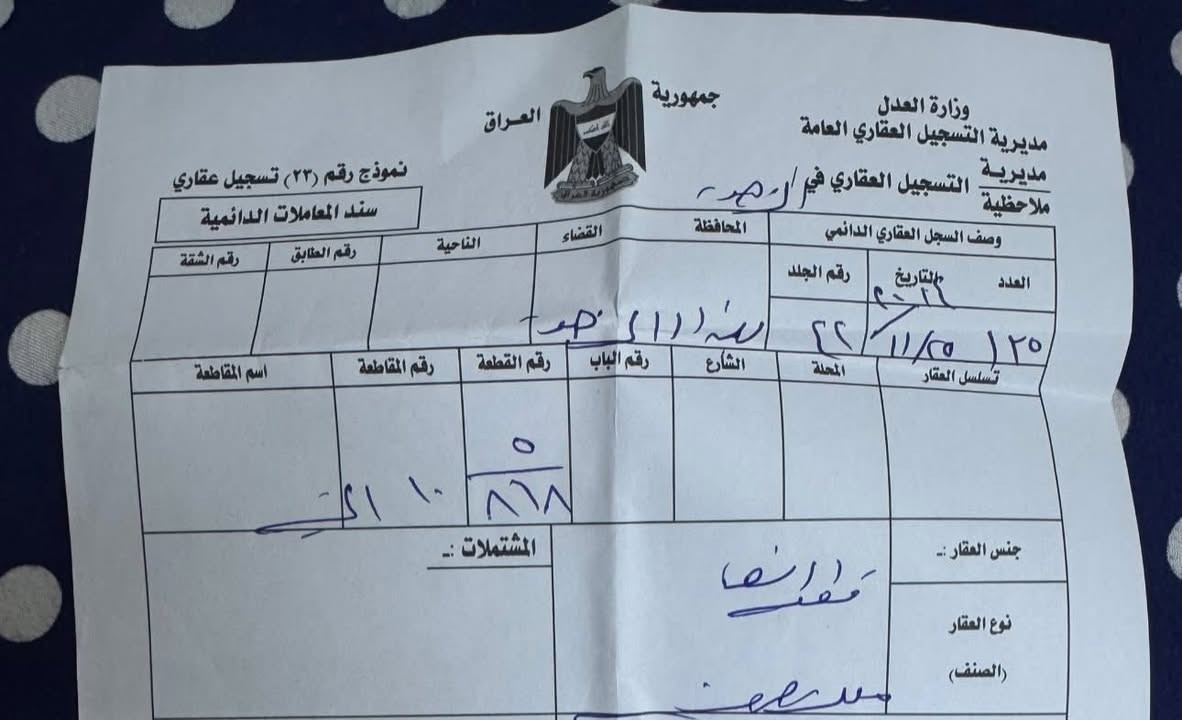 جمهورية العراق
وزارة العدل
مديرية التسجيل العقاري العامة
مديرية
ملاحظية
التسجيل العقاري في
نموذج رقم (٢٣) تسجيل عقاري
سند المعاملات الدائمية
وصف السجل العقاري الدائمي
المحافظة
القضاء
الناحية
رقم الطابق
رقم الشقة
العدد
التاريخ
رقم الجلد
١٢٥
١١/٢٥
٢٢
تسلسل العقار
المحلة
الشارع
رقم الباب
رقم القطعة
رقم المقاطعة
اسم المقاطعة
٥
٨٦٨
١٠
جنس العقار :ـ
المشتملات :ـ
نوع العقار
(الصنف)